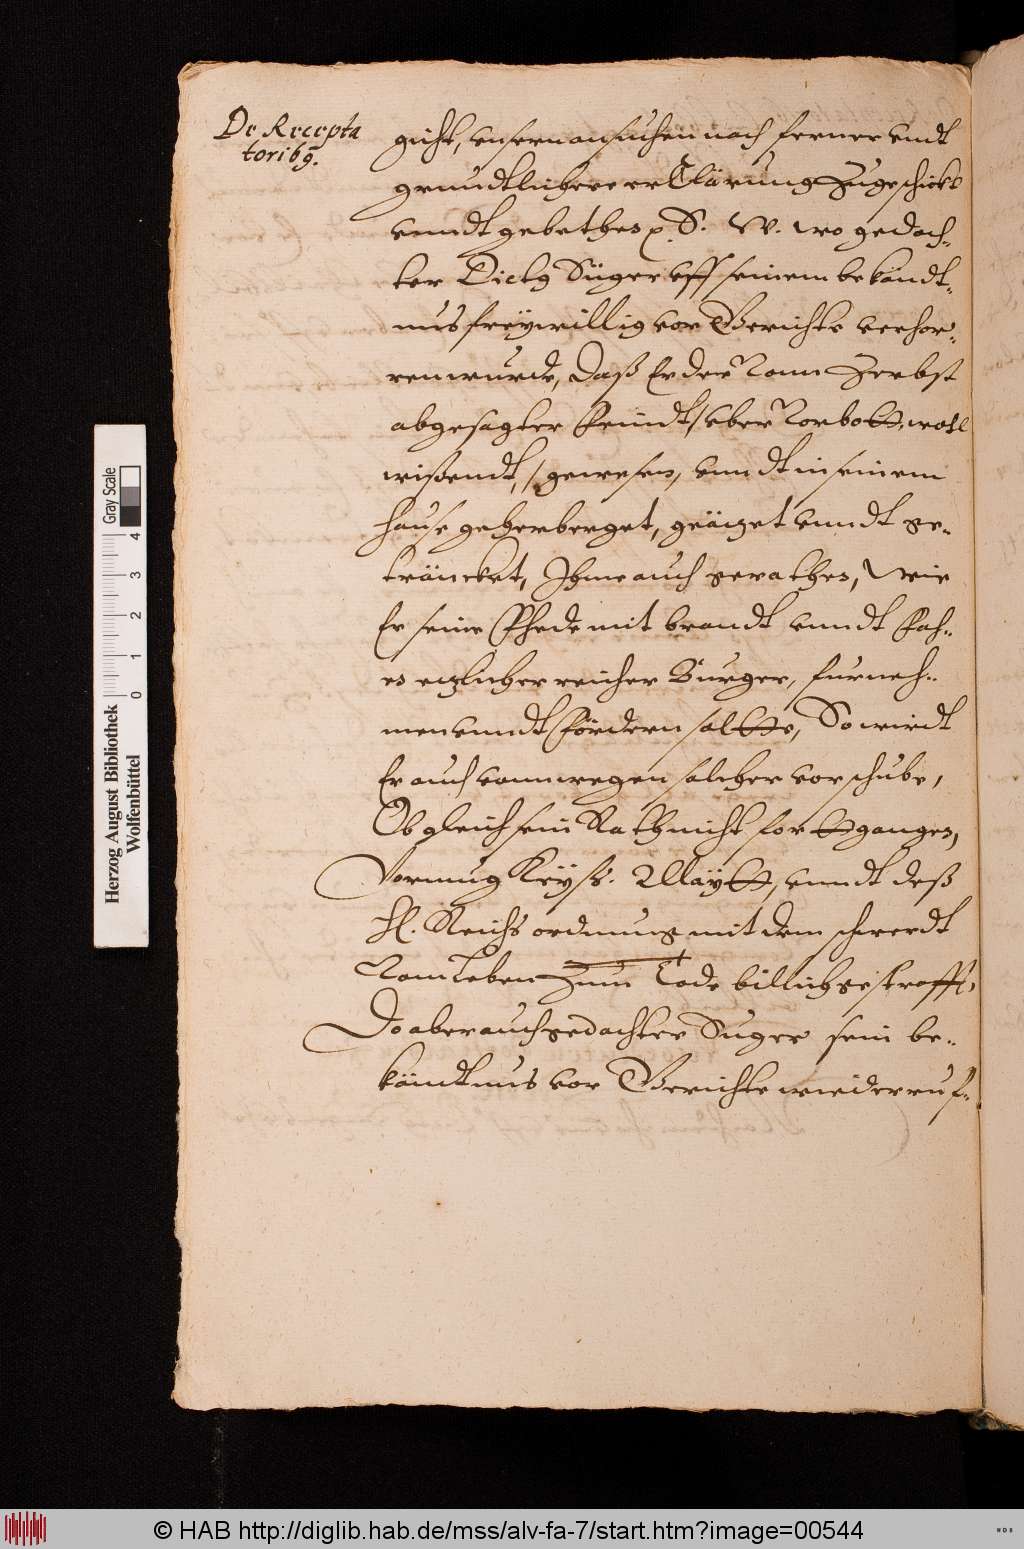 De Recepta
torib9.
gicht, unsern ansuchen nach ferner undt
grundtlichere erClärung Zugeschickt
unndt gebethen p. S. W. wo gedach-
ter Dick9 Süger uff seinem bekandt-
nus freÿwillig vor Gerichte verhar-
ren wurde, Daß Er der Vonn Zerbst
abgesagter Feindt, uber Vorbott, wohl
wißendt, gewesen, unndt in seinem
Hause geherberget, geäzet unndt ge-
träncket, Ihme auch gerathen, Wie
Er seine Phede mit brandt unndt Fah-
en ezlicher reicher Burger, furneh-
men unndt Fördern soltte, So wirdt
Er auch vonn wegen solcher vorschube,
Ob gleich sein Rath nicht forttgangen,
Vormug Keÿß. Maÿtt, unndt deß
Hl. Reichs ordnung mit dem schwerdt
Vom Leben Zum Tode billich gestrafft,
Do aber auch gedachter Suger sein be-
kändtnus vor Gerichte wiederruf-
Herzog August Bibliothek
Wolfenbüttel
Gray Scale
0 1 2 3 4
© HAB http://diglib.hab.de/mss/alv-fa-7/start.htm?image=00544